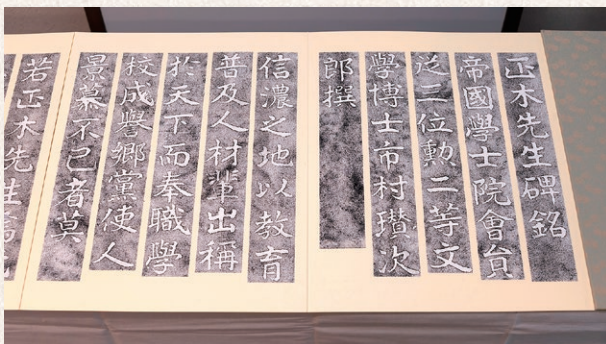 正木先生碑銘
帝國學士院會員
從三位勲二等文
學博士市村瓚次
郎撰
信濃之地以教育
普及人材輩出稱
於天下而奉職學
校成譽鄉黨使人
景慕不已者莫
若正木先生焉先